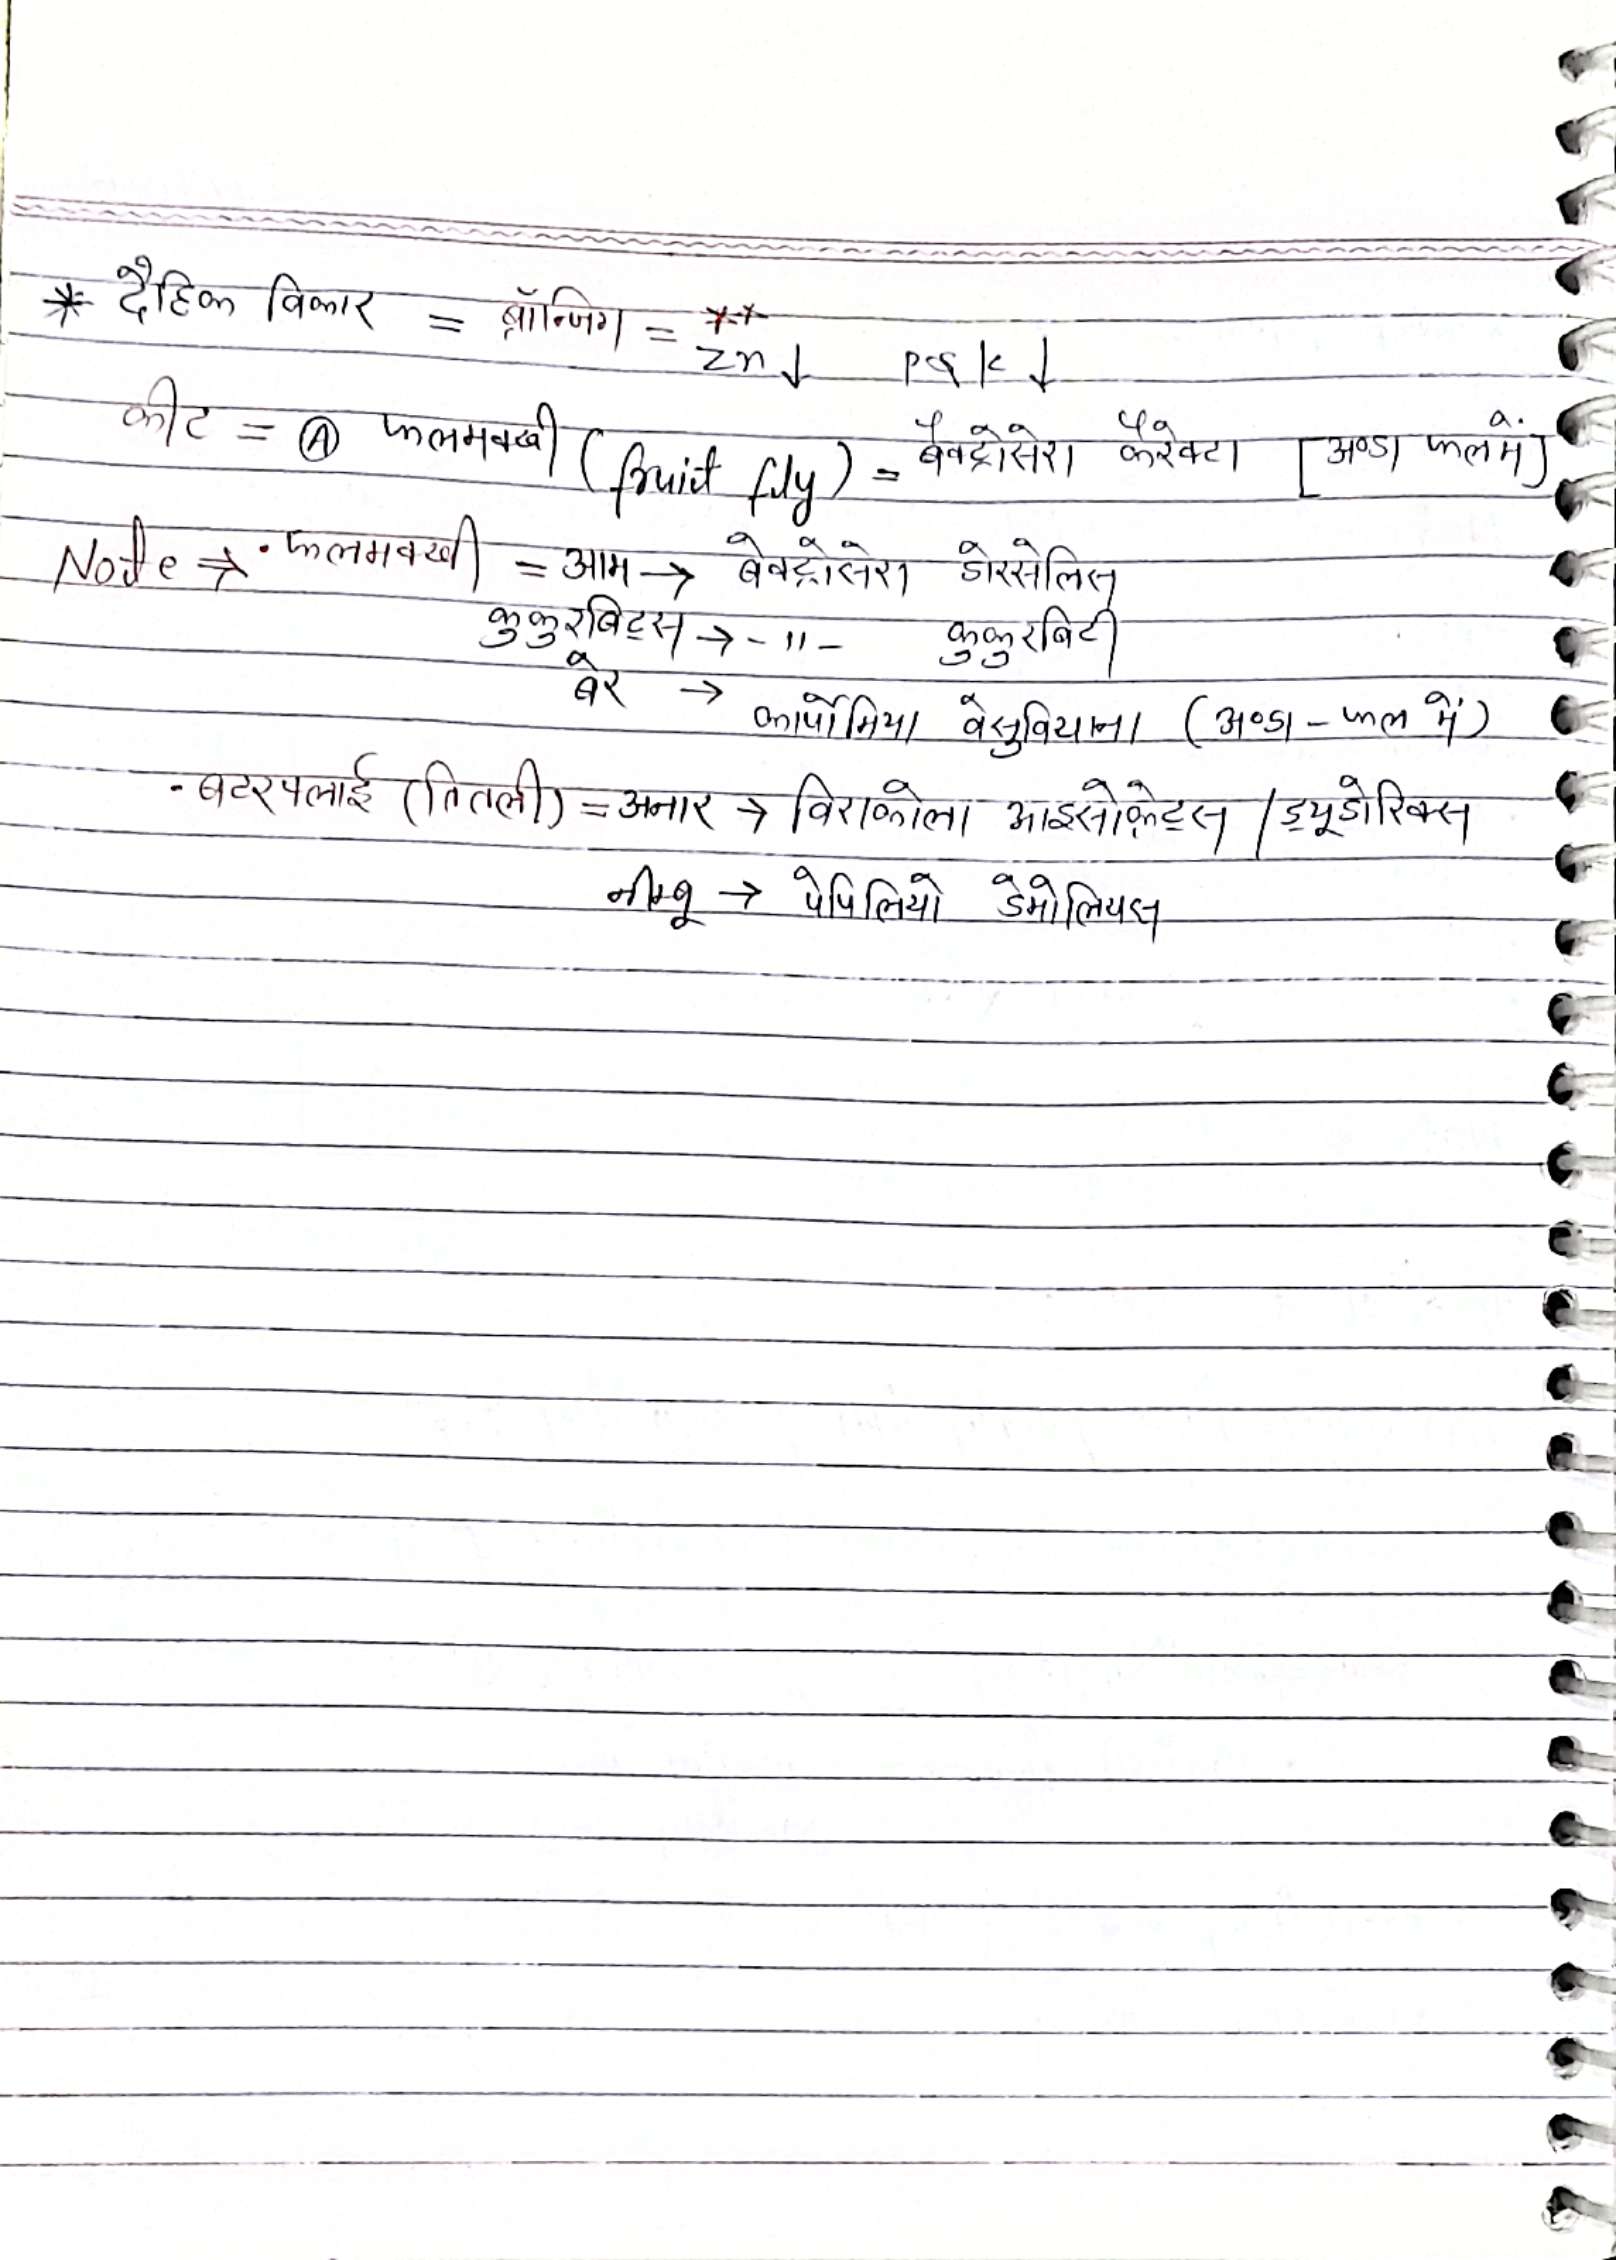 * दैहिक विकार = ब्रॉन्जिंग = ** Zn↓ P & K↓
कीट = Ⓐ फलमक्खी (fruit fly) = बैक्ट्रोसेरा कैरेक्टा [अण्डा फल में]
Note → • फलमक्खी = आम → बेक्ट्रोसेरा डोरसेलिस
कुकुरबिट्स → -॥- कुकुरबिटी
बेर → कार्पोमिया वेसुवियाना (अण्डा - फल में)
• बटरफ्लाई (तितली) = अनार → विराकोला आइसोक्रेट्स / ड्यूडोरिक्स
नीम्बू → पेपिलियो डेमोलियस